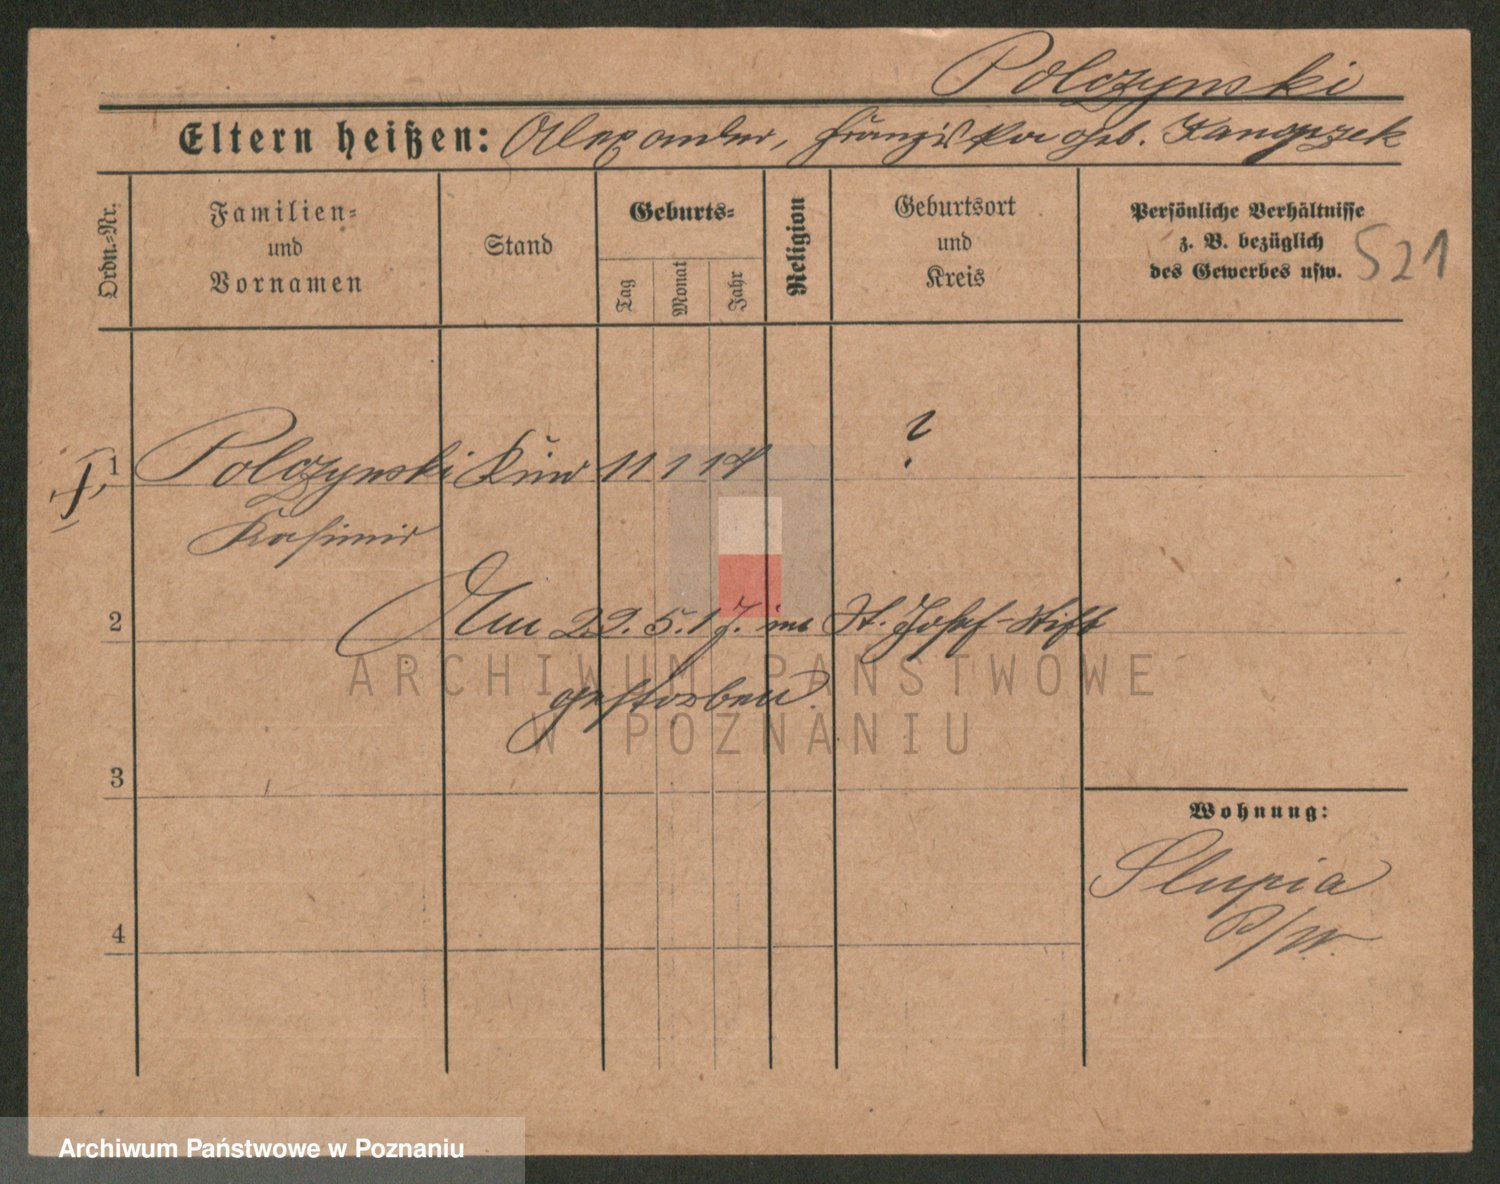 Polczynski
Eltern heißen: Alexander, Franziska geb.
Ordn.-Nr.
Familien-
und
Vornamen
Stand
Geburts-
Tag
Monat
Jahr
Religion
Geburtsort
und
Kreis
Persönliche Verhältnisse
z. B. bezüglich
des Gewerbes usw.
521
1 Polczynski Kind 11 1 14 ?
Kasimir
2 Am 22.5.17. im St. Josef-Stift
gestorben.
3
4
Wohnung:
Slupia
P/W.
ARCHIWUM PAŃSTWOWE
W POZNANIU
Archiwum Państwowe w Poznaniu